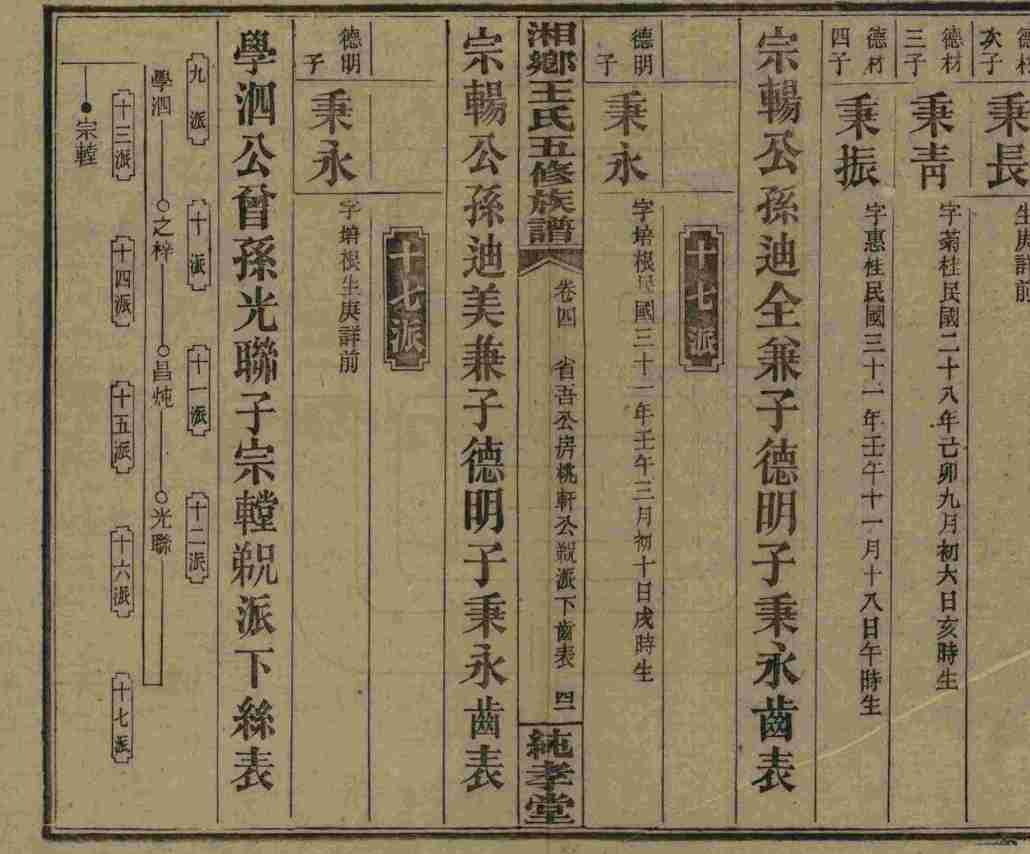 次子
秉長
生庚詳前
德材
三子
秉青
字菊桂民國二十八年己卯九月初六日亥時生
德材
四子
秉振
字惠桂民國三十一年壬午十一月十八日午時生
宗暢公孫迪全兼子德明子秉永齒表
十七派
德明
子
秉永
字培根民國三十一年壬午三月初十日戌時生
湘鄉王氏五修族譜
卷四
省吾公房桃軒公覜派下齒表
四一
純孝堂
宗暢公孫迪美兼子德明子秉永齒表
十七派
德明
子
秉永
字培根生庚詳前
學泗公曾孫光聯子宗䡴覜派下絲表
九派
十派
十一派
十二派
學泗
之梓
昌炖
光聯
十三派
十四派
十五派
十六派
十七派
宗䡴